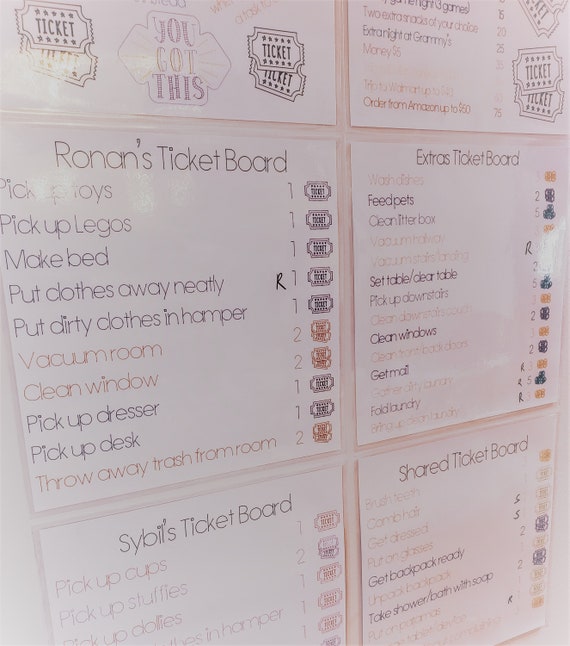 TICKET
TICKET
YOU
GOT
THIS
TICKET
TICKET
a task to
game night (3 games)
Two extra snacks of your choice 20
Extra night at Grammy's 25
Money $5
Trip to Walmart up to $40
Order from Amazon up to $60 75
TICKET
TICKET
Ronan's Ticket Board
Pick up toys 1
Pick up Legos 1
Make bed 1
Put clothes away neatly R 1
Put dirty clothes in hamper 1
Vacuum room 2
Clean window 2
Pick up dresser 1
Pick up desk 1
Throw away trash from room 2
Extras Ticket Board
Wash dishes 3
Feed pets 2
Clean litter box 5
Vacuum hallway
Vacuum stairs/landing R
Set table/clear table 2
Pick up downstairs 5
Clean downstairs
Clean windows 2
Clean front/back doors 3
Get mail 2
Gather dirty laundry R 3
Fold laundry R 5
Bring up clean laundry R
Sybil's Ticket Board
Pick up cups 1
Pick up stuffies 2
Pick up dollies 1
clothes in hamper 1
Shared Ticket Board
Brush teeth
Comb hair S
Get dressed S
Put on glasses 2
Get backpack ready
Unpack backpack 2
Take shower/bath with soap
Put on pajamas R 1